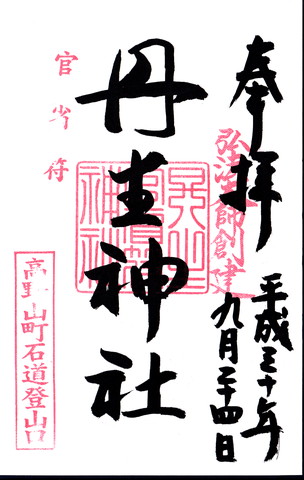 奉拝
弘法大師創建
平成三十年
九月二十四日
丹生神社
官省符
高野山町石道登山口